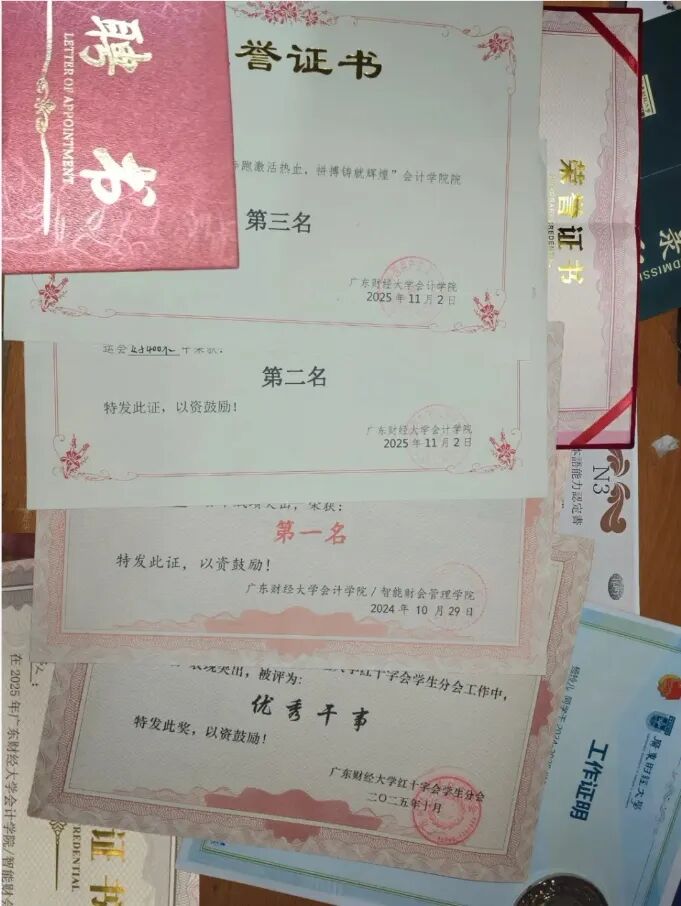 聘书
LETTER OF APPOINTMENT
誉证书
跑激活热血,拼搏铸就辉煌”会计学院院
第三名
广东财经大学会计学院
2025年11月2日
第二名
特发此证,以资鼓励!
广东财经大学会计学院
2025年11月2日
第一名
特发此证,以资鼓励!
广东财经大学会计学院/智能财会管理学院
2024年10月29日
表现突出,被评为:
红十字会学生分会工作中,
优秀干事
特发此奖,以资鼓励!
广东财经大学红十字会学生分会
二〇二五年十月
荣誉证书
N3
本語能力認定書
广东财经大学
工作证明
在2025年广东财经大学会计学院/智能财会
证书
REDENTIAL